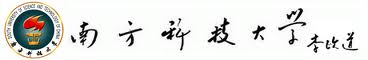 SOUTH UNIVERSITY OF SCIENCE AND TECHNOLOGY OF CHINA
南方科技大学
南方科技大学 李政道